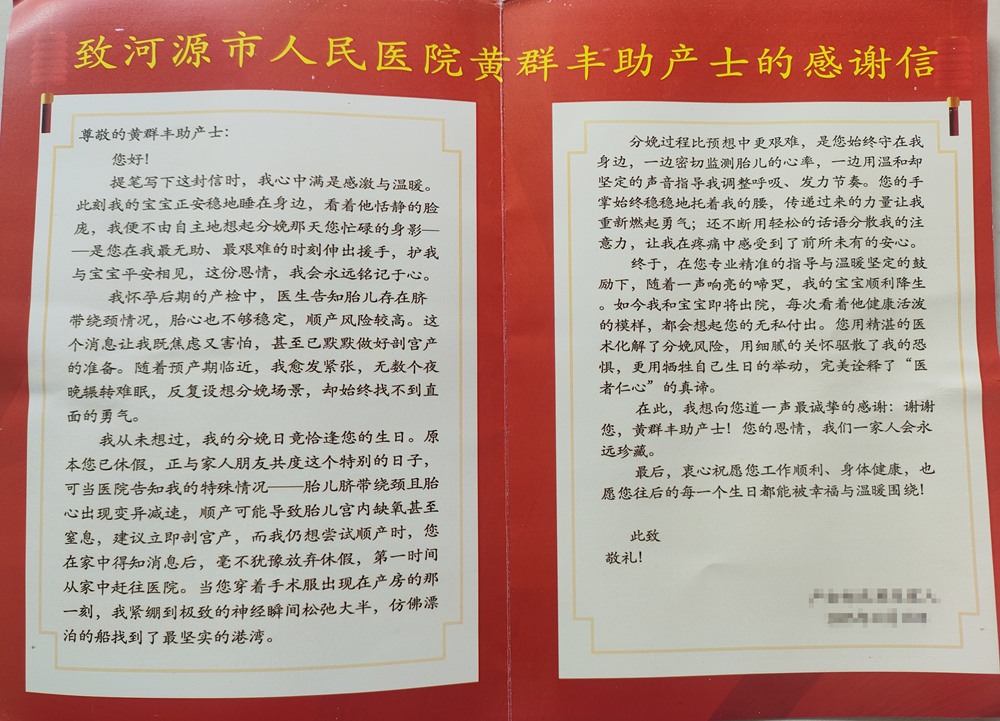 致河源市人民医院黄群丰助产士的感谢信
尊敬的黄群丰助产士：
您好！
提笔写下这封信时，我心中满是感激与温暖。
此刻我的宝宝正安稳地睡在身边，看着他恬静的脸
庞，我便不由自主地想起分娩那天您忙碌的身影—
—是您在我最无助、最艰难的时刻伸出援手，护我
与宝宝平安相见，这份恩情，我会永远铭记于心。
我怀孕后期的产检中，医生告知胎儿存在脐
带绕颈情况，胎心也不够稳定，顺产风险较高。这
个消息让我既焦虑又害怕，甚至已默默做好剖宫产
的准备。随着预产期临近，我愈发紧张，无数个夜
晚辗转难眠，反复设想分娩场景，却始终找不到直
面的勇气。
我从未想过，我的分娩日竟恰逢您的生日。原
本您已休假，正与家人朋友共度这个特别的日子，
可当医院告知我的特殊情况——胎儿脐带绕颈且胎
心出现变异减速，顺产可能导致胎儿宫内缺氧甚至
窒息，建议立即剖宫产，而我仍想尝试顺产时，您
在家中得知消息后，毫不犹豫放弃休假，第一时间
从家中赶往医院。当您穿着手术服出现在产房的那
一刻，我紧绷到极致的神经瞬间松弛大半，仿佛漂
泊的船找到了最坚实的港湾。
分娩过程比预想中更艰难，是您始终守在我
身边，一边密切监测胎儿的心率，一边用温和却
坚定的声音指导我调整呼吸、发力节奏。您的手
掌始终稳稳地托着我的腰，传递过来的力量让我
重新燃起勇气；还不断用轻松的话语分散我的注
意力，让我在疼痛中感受到了前所未有的安心。
终于，在您专业精准的指导与温暖坚定的鼓
励下，随着一声响亮的啼哭，我的宝宝顺利降生
。如今我和宝宝即将出院，每次看着他健康活泼
的模样，都会想起您的无私付出。您用精湛的医
术化解了分娩风险，用细腻的关怀驱散了我的恐
惧，更用牺牲自己生日的举动，完美诠释了“医
者仁心”的真谛。
在此，我想向您道一声最诚挚的感谢：谢谢
您，黄群丰助产士！您的恩情，我们一家人会永
远珍藏。
最后，衷心祝愿您工作顺利、身体健康，也
愿您往后的每一个生日都能被幸福与温暖围绕！
此致
敬礼！